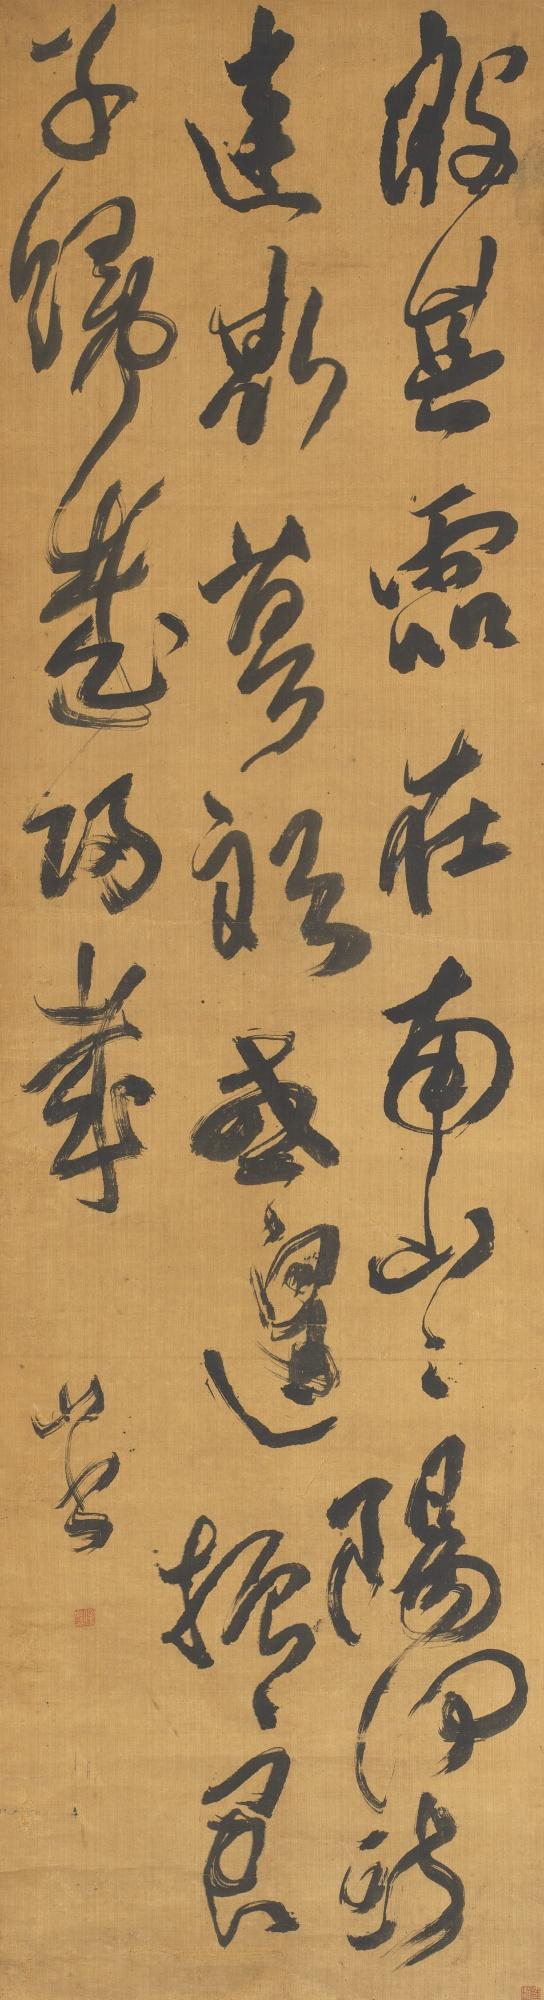 殷其靁在南山之陽何斯
違斯莫敢或遑振振君
子歸哉歸哉
山